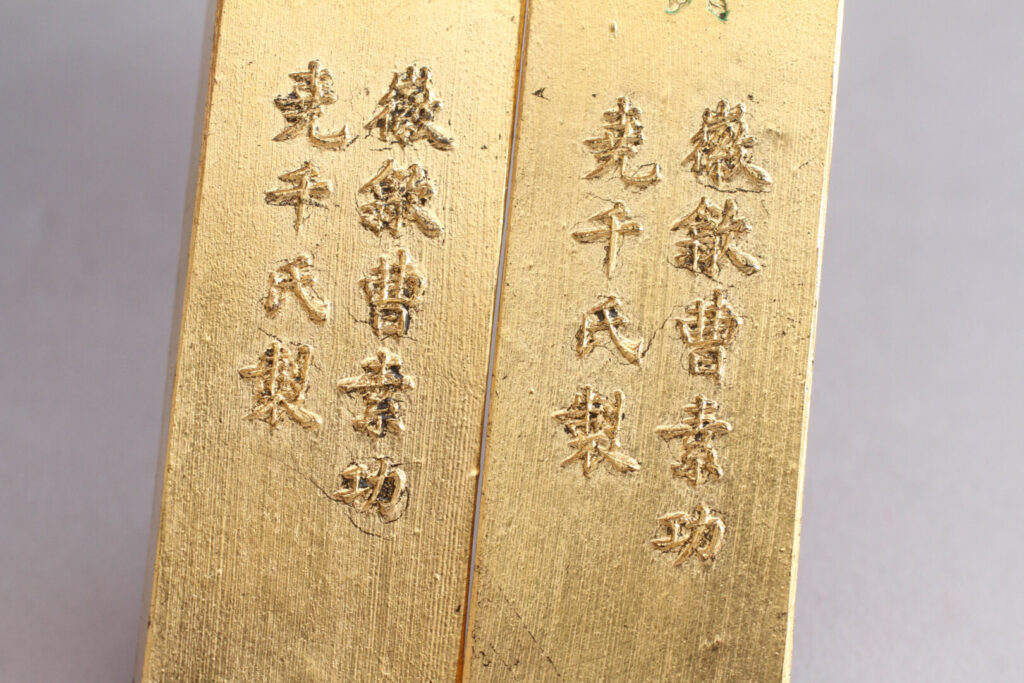 徽歙曹素功
堯千氏製
徽歙曹素功
堯千氏製